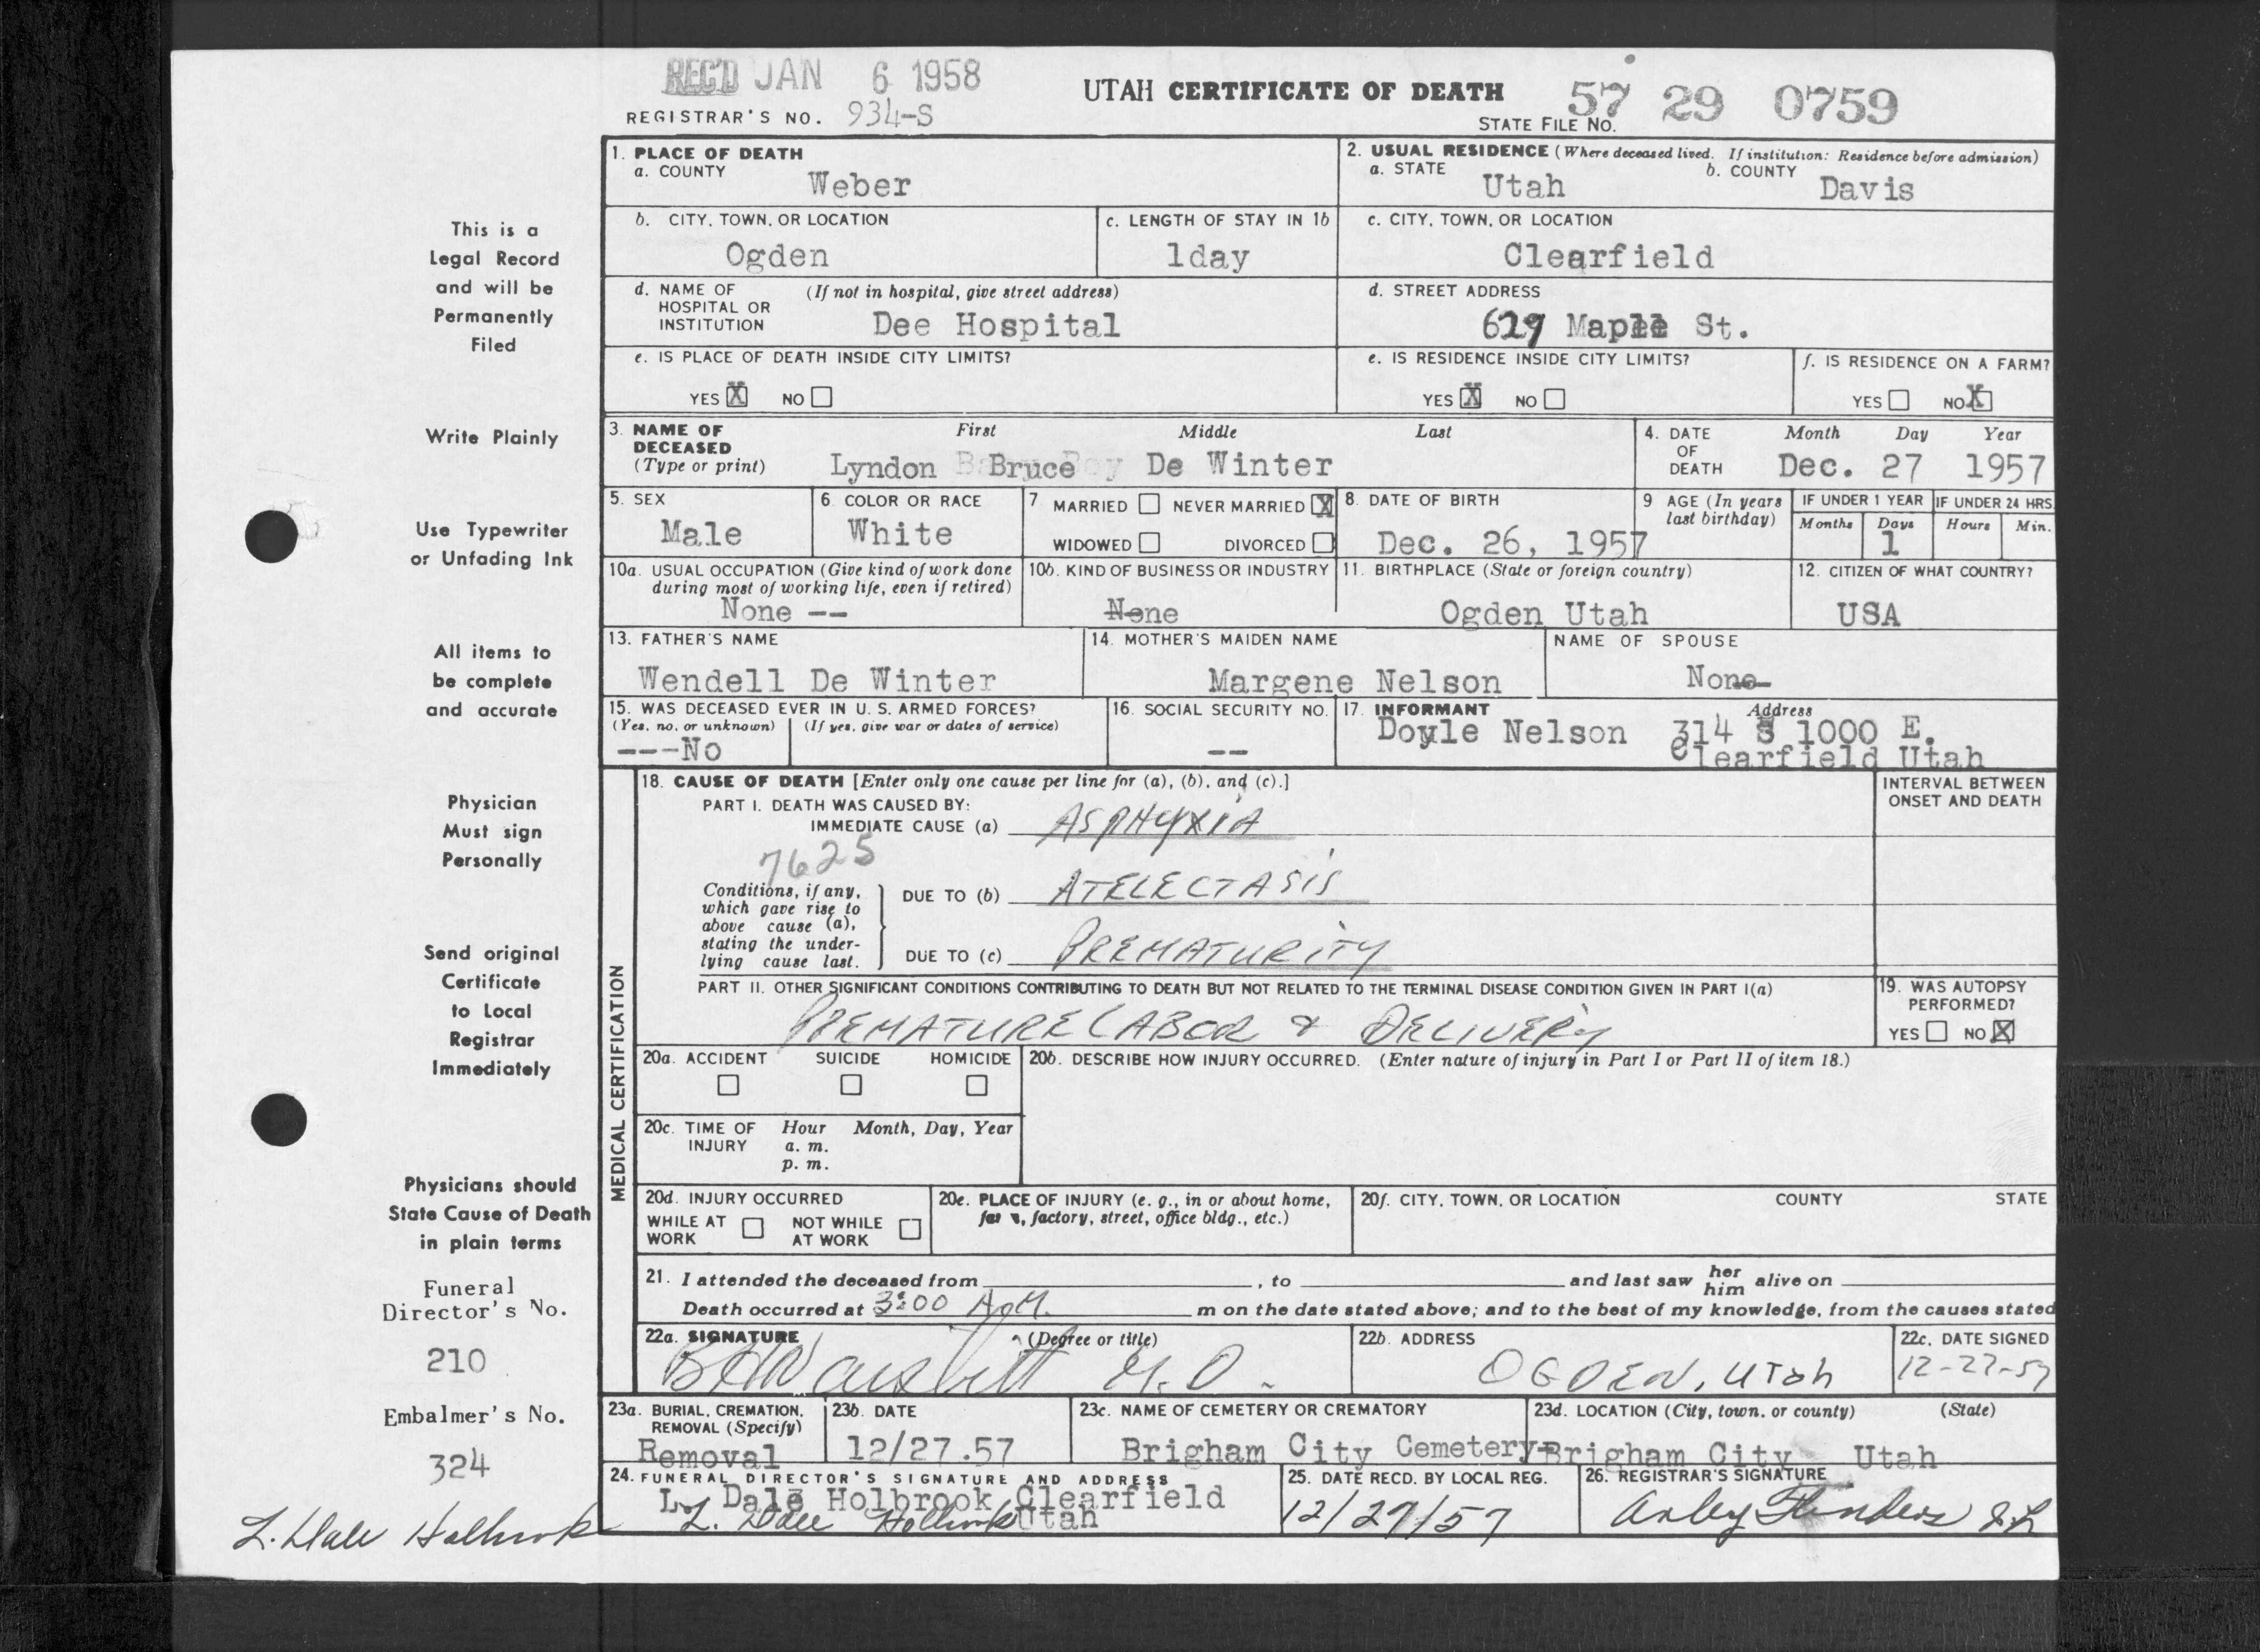 REC'D JAN 6 1958
UTAH CERTIFICATE OF DEATH
57 29 0759
REGISTRAR'S NO. 934-S
STATE FILE NO.
1. PLACE OF DEATH
a. COUNTY
Weber
2. USUAL RESIDENCE (Where deceased lived. If institution: Residence before admission)
a. STATE
Utah
b. COUNTY
Davis
b. CITY, TOWN, OR LOCATION
Ogden
c. LENGTH OF STAY IN 1b
1day
c. CITY, TOWN, OR LOCATION
Clearfield
d. NAME OF HOSPITAL OR INSTITUTION
(If not in hospital, give street address)
Dee Hospital
d. STREET ADDRESS
629 Maple St.
e. IS PLACE OF DEATH INSIDE CITY LIMITS?
YES X NO
e. IS RESIDENCE INSIDE CITY LIMITS?
YES X NO
f. IS RESIDENCE ON A FARM?
YES NO X
3. NAME OF DECEASED
(Type or print)
First Middle Last
Lyndon Bruce De Winter
4. DATE OF DEATH
Month Day Year
Dec. 27 1957
5. SEX
Male
6. COLOR OR RACE
White
7 MARRIED NEVER MARRIED X
WIDOWED DIVORCED
8. DATE OF BIRTH
Dec. 26, 1957
9 AGE (In years last birthday)
IF UNDER 1 YEAR
Months Days
1
IF UNDER 24 HRS.
Hours Min.
10a. USUAL OCCUPATION (Give kind of work done during most of working life, even if retired)
None --
10b. KIND OF BUSINESS OR INDUSTRY
None
11. BIRTHPLACE (State or foreign country)
Ogden Utah
12. CITIZEN OF WHAT COUNTRY?
USA
13. FATHER'S NAME
Wendell De Winter
14. MOTHER'S MAIDEN NAME
Margene Nelson
NAME OF SPOUSE
None
15. WAS DECEASED EVER IN U. S. ARMED FORCES?
(Yes, no, or unknown) (If yes, give war or dates of service)
---No
16. SOCIAL SECURITY NO.
--
17. INFORMANT
Address
Doyle Nelson 314 S 1000 E.
Clearfield Utah
MEDICAL CERTIFICATION
18. CAUSE OF DEATH [Enter only one cause per line for (a), (b), and (c).]
INTERVAL BETWEEN ONSET AND DEATH
PART I. DEATH WAS CAUSED BY:
IMMEDIATE CAUSE (a) ASPHYXIA
7625
Conditions, if any, which gave rise to above cause (a), stating the underlying cause last.
DUE TO (b) ATELECTASIS
DUE TO (c) PREMATURITY
PART II. OTHER SIGNIFICANT CONDITIONS CONTRIBUTING TO DEATH BUT NOT RELATED TO THE TERMINAL DISEASE CONDITION GIVEN IN PART I(a)
PREMATURE LABOR & DELIVERY
19. WAS AUTOPSY PERFORMED?
YES NO X
20a. ACCIDENT SUICIDE HOMICIDE
20b. DESCRIBE HOW INJURY OCCURRED. (Enter nature of injury in Part I or Part II of item 18.)
20c. TIME OF INJURY
Hour Month, Day, Year
a. m.
p. m.
20d. INJURY OCCURRED
WHILE AT WORK NOT WHILE AT WORK
20e. PLACE OF INJURY (e. g., in or about home, factory, street, office bldg., etc.)
20f. CITY, TOWN, OR LOCATION COUNTY STATE
21. I attended the deceased from , to and last saw her him alive on
Death occurred at 3:00 A.M. m on the date stated above; and to the best of my knowledge, from the causes stated
22a. SIGNATURE (Degree or title)
M.D.
22b. ADDRESS
OGDEN, UTah
22c. DATE SIGNED
12-27-57
23a. BURIAL, CREMATION, REMOVAL (Specify)
Removal
23b. DATE
12/27.57
23c. NAME OF CEMETERY OR CREMATORY
Brigham City Cemetery
23d. LOCATION (City, town, or county) (State)
Brigham City Utah
24. FUNERAL DIRECTOR'S SIGNATURE AND ADDRESS
L. Dale Holbrook Clearfield
Utah
L. Dale Holbrook
25. DATE RECD. BY LOCAL REG.
12/27/57
26. REGISTRAR'S SIGNATURE
This is a
Legal Record
and will be
Permanently
Filed
Write Plainly
Use Typewriter
or Unfading Ink
All items to
be complete
and accurate
Physician
Must sign
Personally
Send original
Certificate
to Local
Registrar
Immediately
Physicians should
State Cause of Death
in plain terms
Funeral
Director's No.
210
Embalmer's No.
324
L. Dale Holbrook